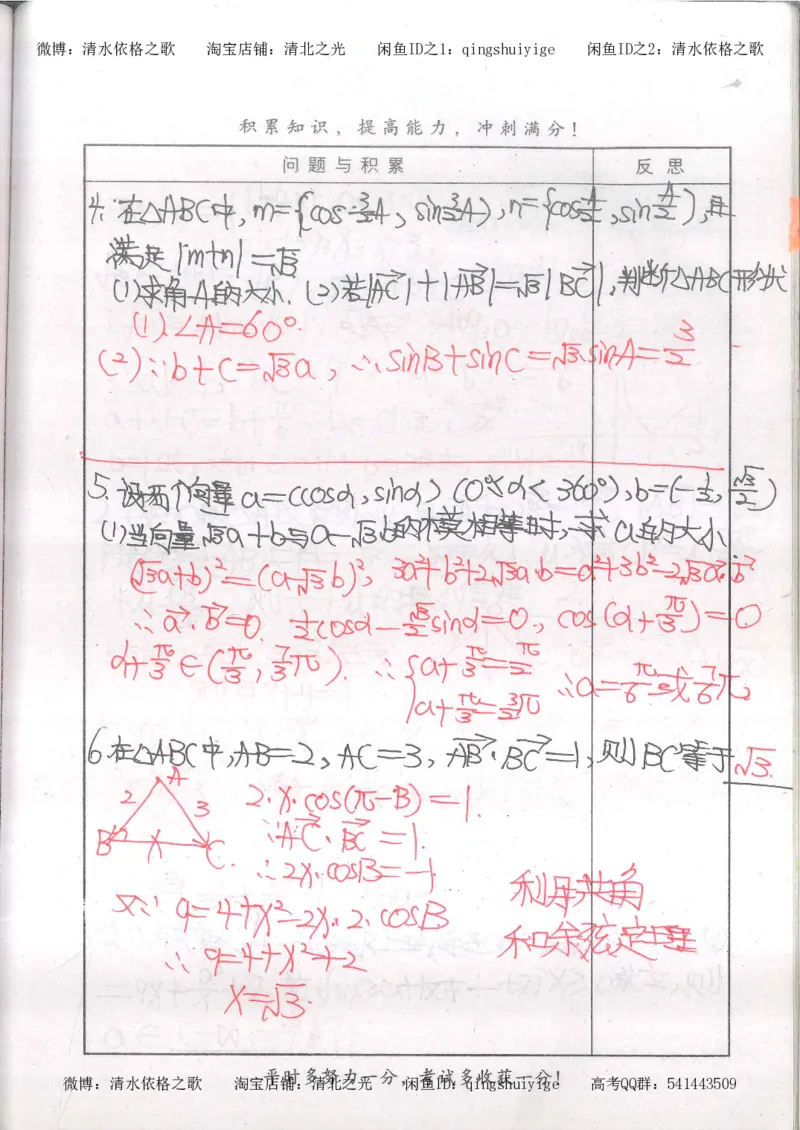 微博：清水依格之歌 淘宝店铺：清北之光 闲鱼ID之1：qingshuiyige 闲鱼ID之2：清水依格之歌
积累知识，提高能力，冲刺满分！
问题与积累 反思
4. 在△ABC中, m={cos3/2A, sin3/2A), n={cosA/2, sinA/2), 且
满足|m+n|=√3
(1)求角A的大小. (2)若|AC→|+|AB→|=√3|BC→|, 判断△ABC形状
(1)∠A=60°.
(2)∵b+c=√3a, ∴sinB+sinC=√3.sinA=3/2
5. 设两个向量a=(cosα, sinα) (0°≤α<360°), b=(-1/2, √3/2)
(1)当向量√3a+b与a-√3b的模相等时, 求α的大小
(√3a+b)²=(a-√3b)², 3a²+b²+2√3a·b=a²+3b²-2√3a→·b→
∴a→·b→=0. 1/2cosα-√3/2sinα=0, cos(α+π/3)=0
α+π/3∈(π/3, 7/3π). ∴{α+π/3=π/2
α+π/3=3/2π ∴α=π/6或7/6π
6.在△ABC中,AB=2, AC=3, AB→·BC→=1, 则BC等于√3.
A
2 3
B x C
2·x·cos(π-B)=1.
∵AC→·BC→=1.
∴2x·cosB=-1
又∵ 9=4+x²-2x·2·cosB
∴9=4+x²+2
x=√3.
利用共角
和余弦定理
平时多努力一分，考试多收获一分！
微博：清水依格之歌 淘宝店铺：清北之光 闲鱼ID：qingshuiyige 高考QQ群：541443509